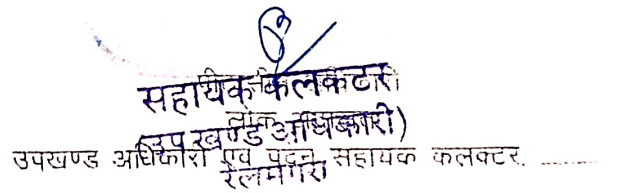 सहायक कलक्टर
(उपखण्ड अधिकारी)
उपखण्ड अधिकारी एवं पदेन सहायक कलक्टर, ............
रेलमगरा